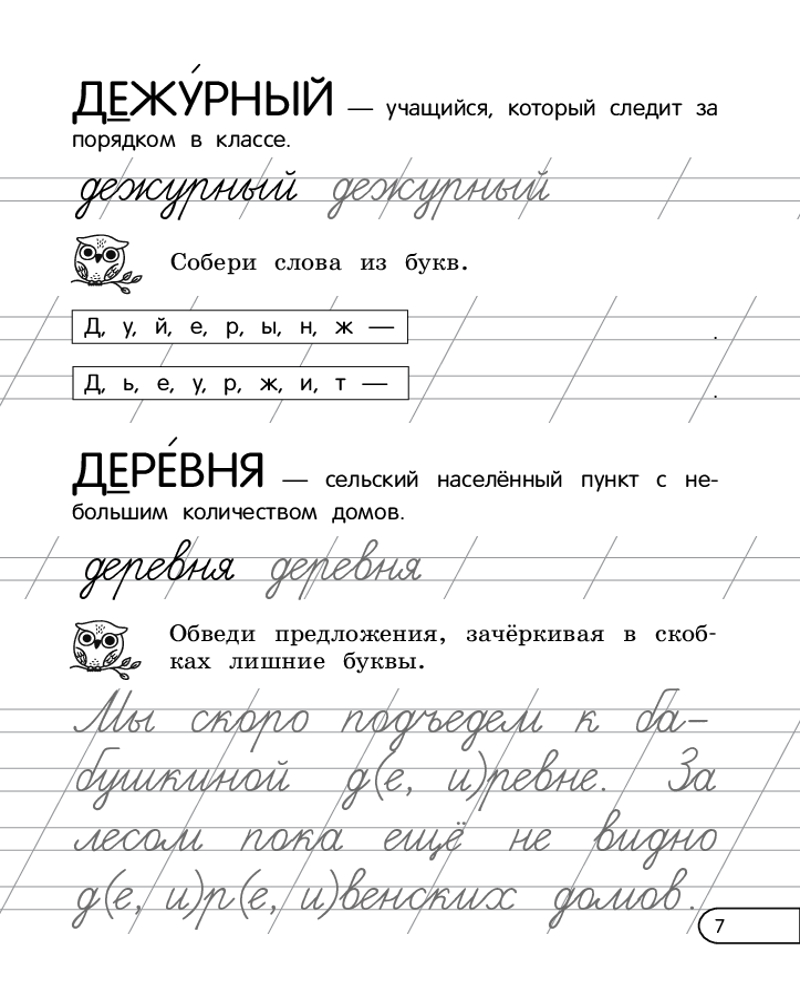 ДЕЖУ́РНЫЙ — учащийся, который следит за
порядком в классе.
дежурный дежурный
Собери слова из букв.
Д, у, й, е, р, ы, н, ж — .
Д, ь, е, у, р, ж, и, т — .
ДЕРЕ́ВНЯ — сельский населённый пункт с не-
большим количеством домов.
деревня деревня
Обведи предложения, зачёркивая в скоб-
ках лишние буквы.
Мы скоро подъедем к ба-
бушкиной д(е, и)ревне. За
лесом пока ещё не видно
д(е, и)р(е, и)венских домов.
7